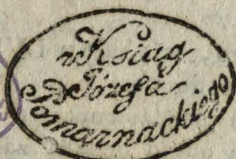 z Ksiąg
Józefa
Pomarnackiego